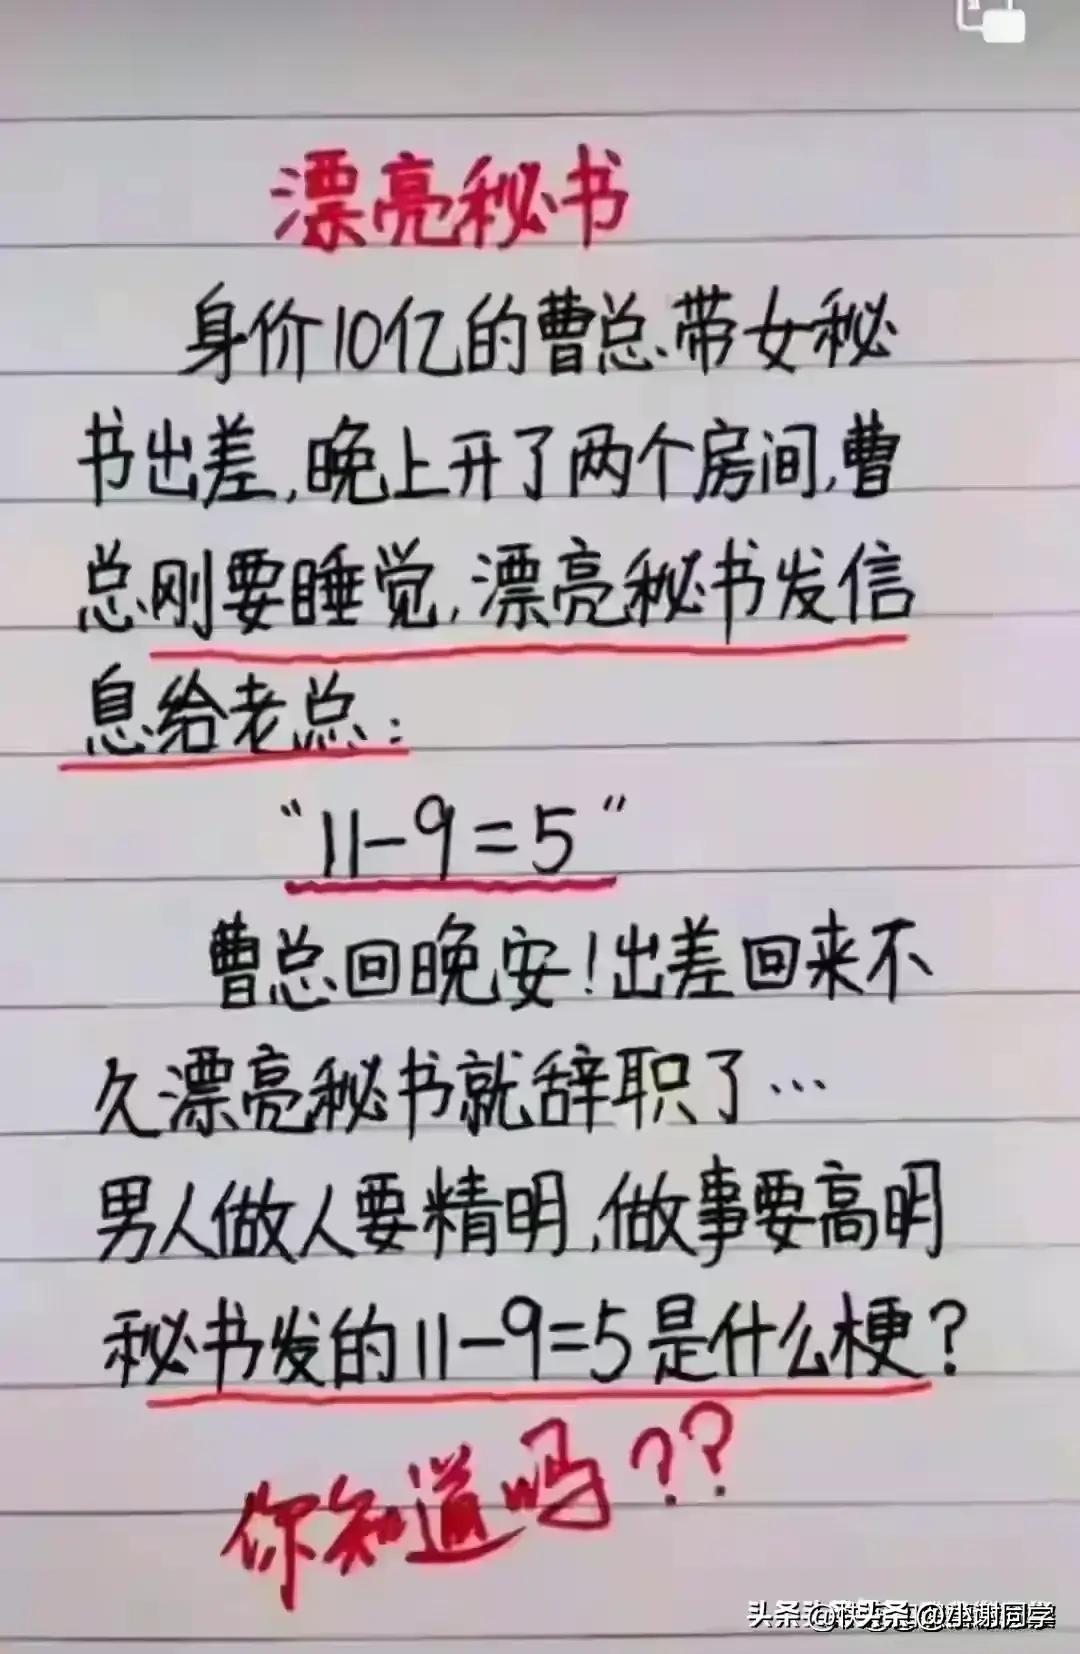 漂亮秘书
身价10亿的曹总带女秘
书出差,晚上开了两个房间,曹
总刚要睡觉,漂亮秘书发信
息给老总:
“11-9=5”
曹总回晚安!出差回来不
久漂亮秘书就辞职了…
男人做人要精明,做事要高明
秘书发的11-9=5是什么梗?
你知道吗??
头条 @小谢同学